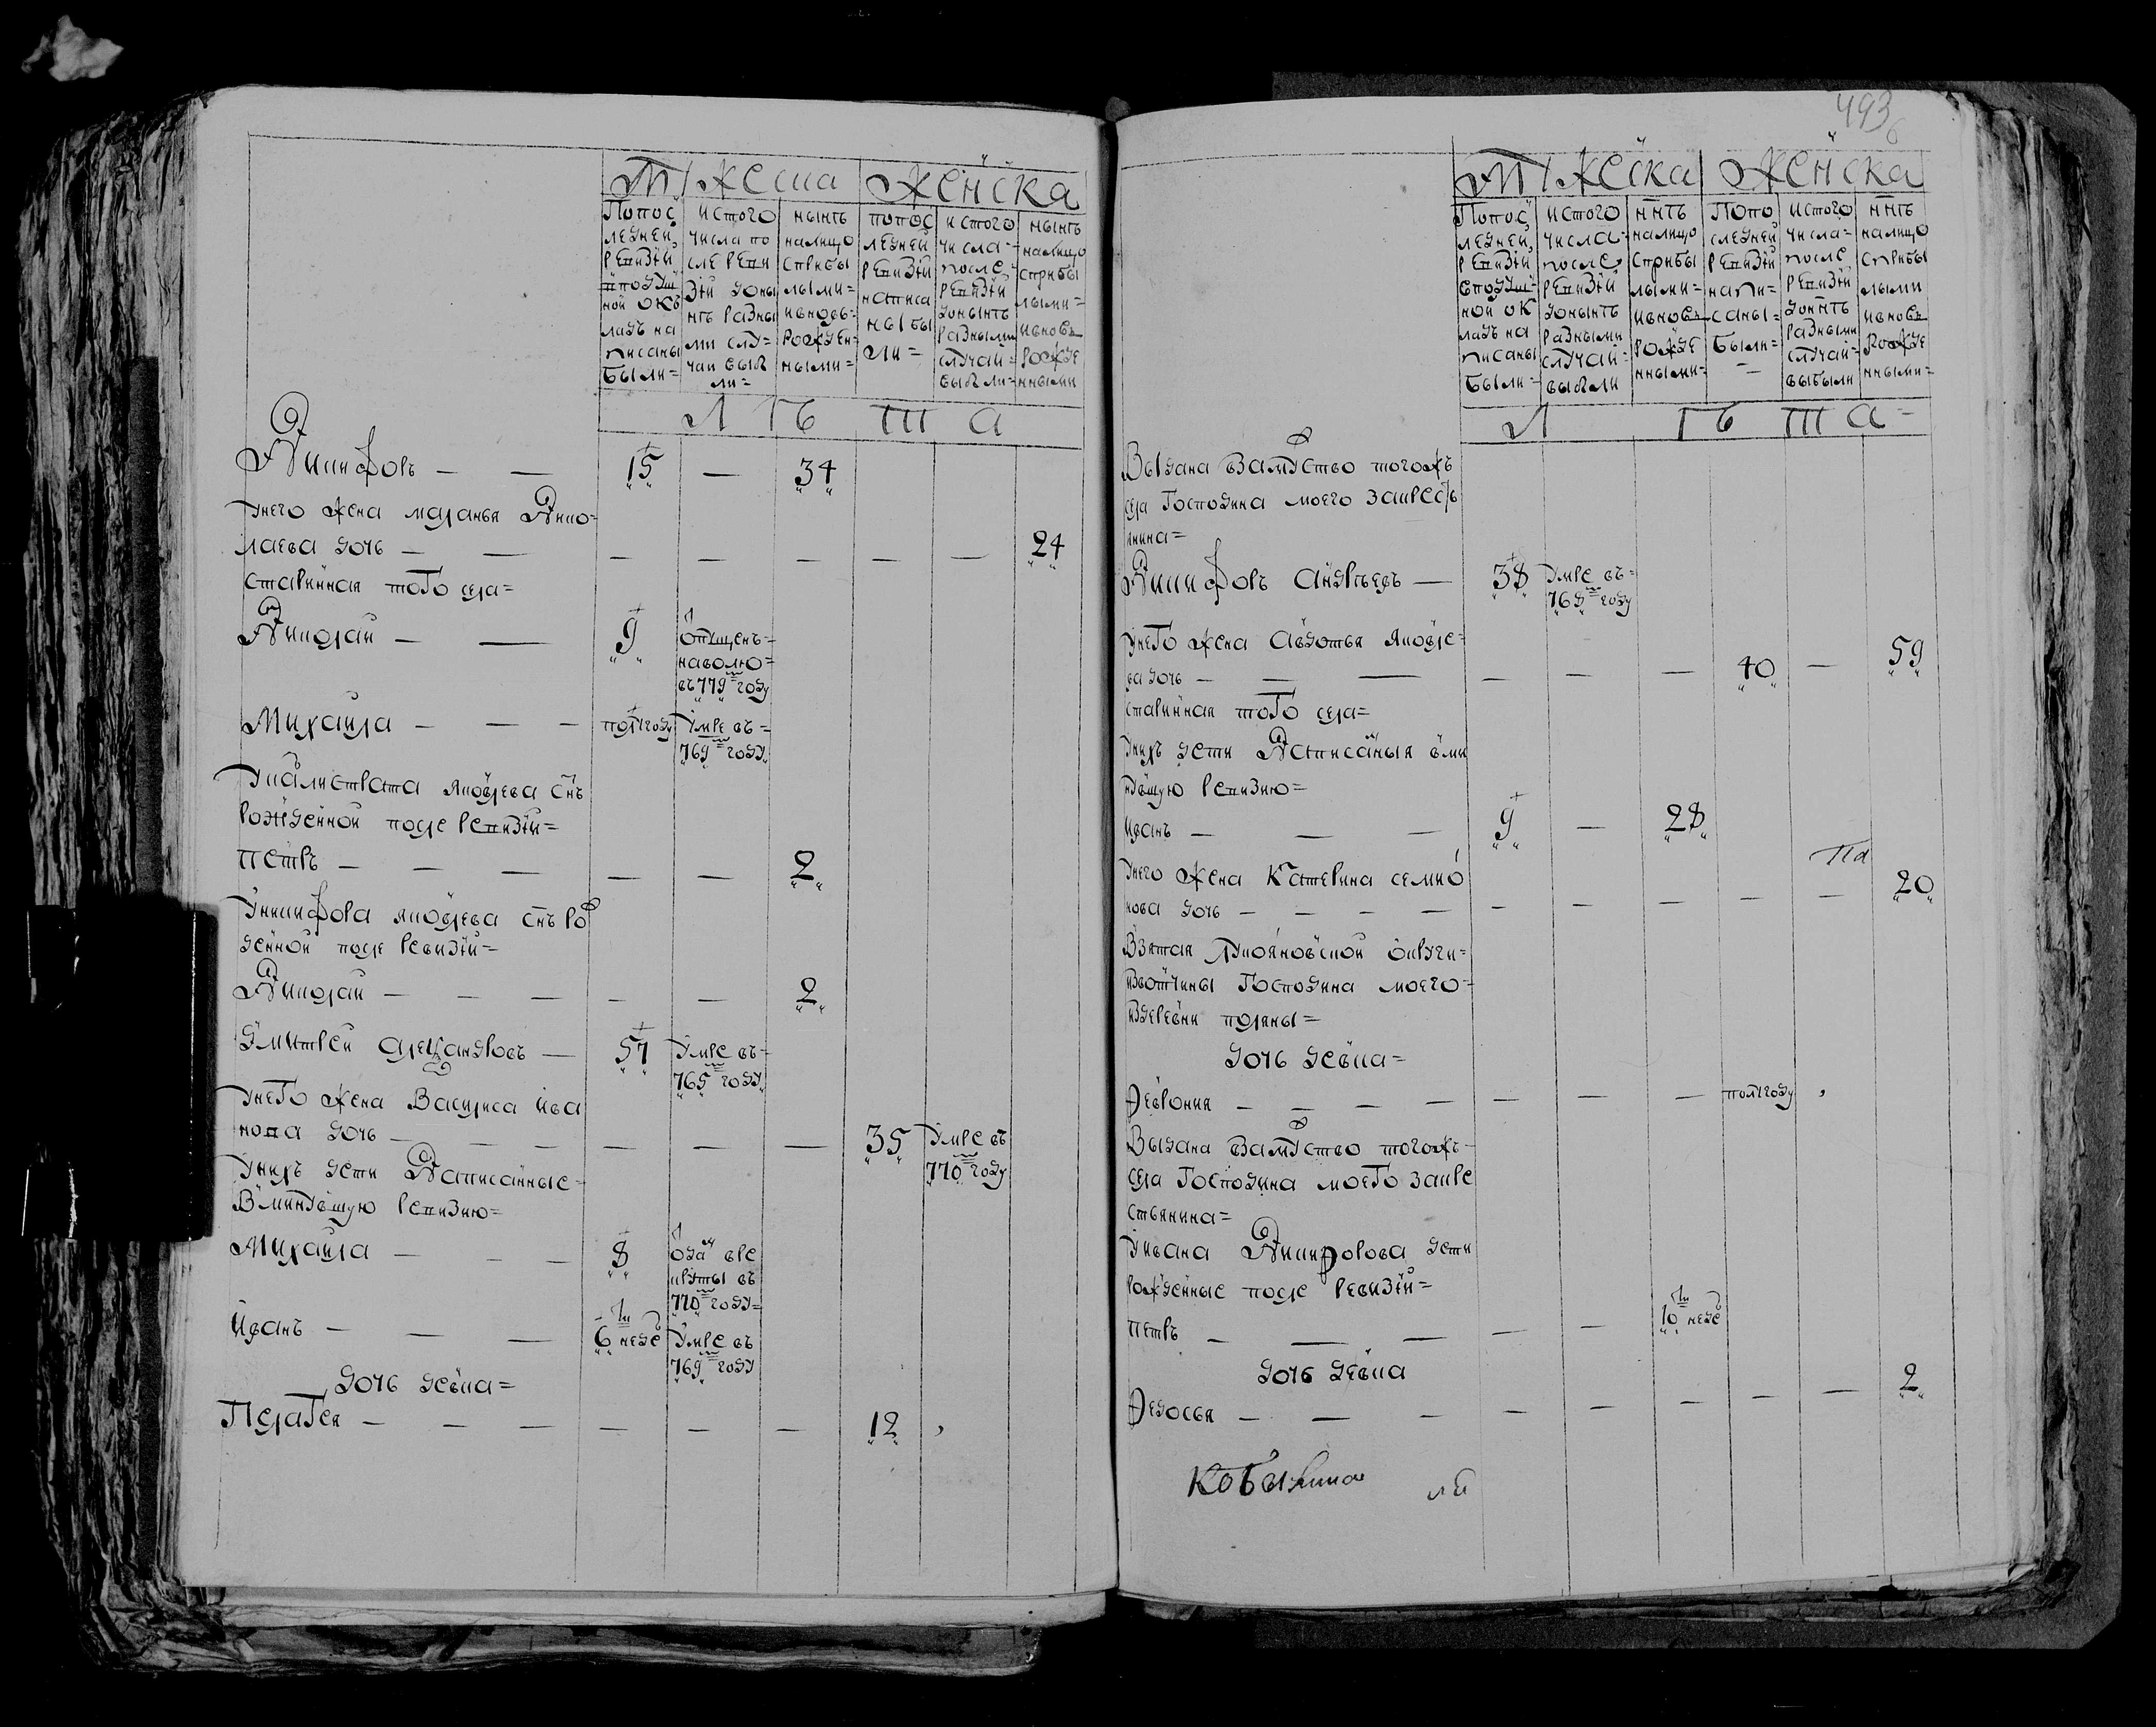 Мужеска Женска
Попос
ледней,
ревизіи
вподуш
ной окъ
ладъ на
писаны
были=
истого
числа по
сле реви
зіи доны
нѣ разны
ми слу=
чаи выб
ли=
нынѣ
налицо
спрыбы
лыми=
ивновь=
рожден=
ными=
попос
ледней
ревизіи
написа
ны бы
ли=
истого
числа=
после
ревизіи
донынѣ
разными
случаи=
выбыли=
нынѣ
налицо
сприбы
лыми=
ивновь
рожде
нными
Л Ѣ Т А
Никифоръ — — 15 — 34
Унего жена маланья Нико=
лаева дочь — — 24
старинная того села=
Николаи — — 9 отпущенъ=
наволю=
въ 779м году
Михаила — — — полугоду умре въ=
769м году
Укалистрата яковлева снъ
рожденнои после ревизіи=
петръ — — — 2
Уникифора яковлева снъ ро
жденнои после ревизіи=
Николаи — — — 2
Дмитреи александровъ — 57 умре въ=
765 году
Унего жена Василиса ива
нова дочь — — — 35 умре въ
770 году
Унихъ дети Написанные=
Вминувшую ревизию=
Михаила — — — 8 отдан вре
круты въ
770м году=
Иванъ — — — 6 неде умре въ
769 году
дочь девка=
Пелагея — — — 12
493
Мужеска Женска
Попос
ледней,
ревизіи
вподуш=
ной ок
ладъ на
писаны
были=
истого
числа=
после
ревизіи
донынѣ
разными
случаи=
выбыли
ннѣ
налицо
сприбы
лыми=
ивновь
рожде
нными=
Попо
следней
ревизіи
напи=
саны=
были=
истого
числа=
после
ревизіи
доннѣ
разными
случаи=
выбыли
ннѣ
налицо
сприбы
лыми
ивновь
рожде
нными=
Л Ѣ Т А=
Выдана взамуство тогожъ
села Господина моего закресть
янина=
Никифоръ андреевъ — 38 умре въ=
769м году
Унего жена авдотья яковле=
ва дочь — — — 40 — 59
старинная того села=
Унихъ дети Написаныя вми
нувшую ревизию=
иванъ — — — 9 — 28
Унего жена Катерина семио
нова дочь — — — — 20
Взятая Лукояновской округи=
извотчины Господина моего=
издеревни поляны=
дочь девка=
Феврония — — — — полугоду
Выдана взамуство тогожъ=
села Господина моего закре
стьянина=
Уивана Никифорова дети
рожденные после ревизіи=
петръ — — — 10 неде
дочь девка
Федосья — — — 2